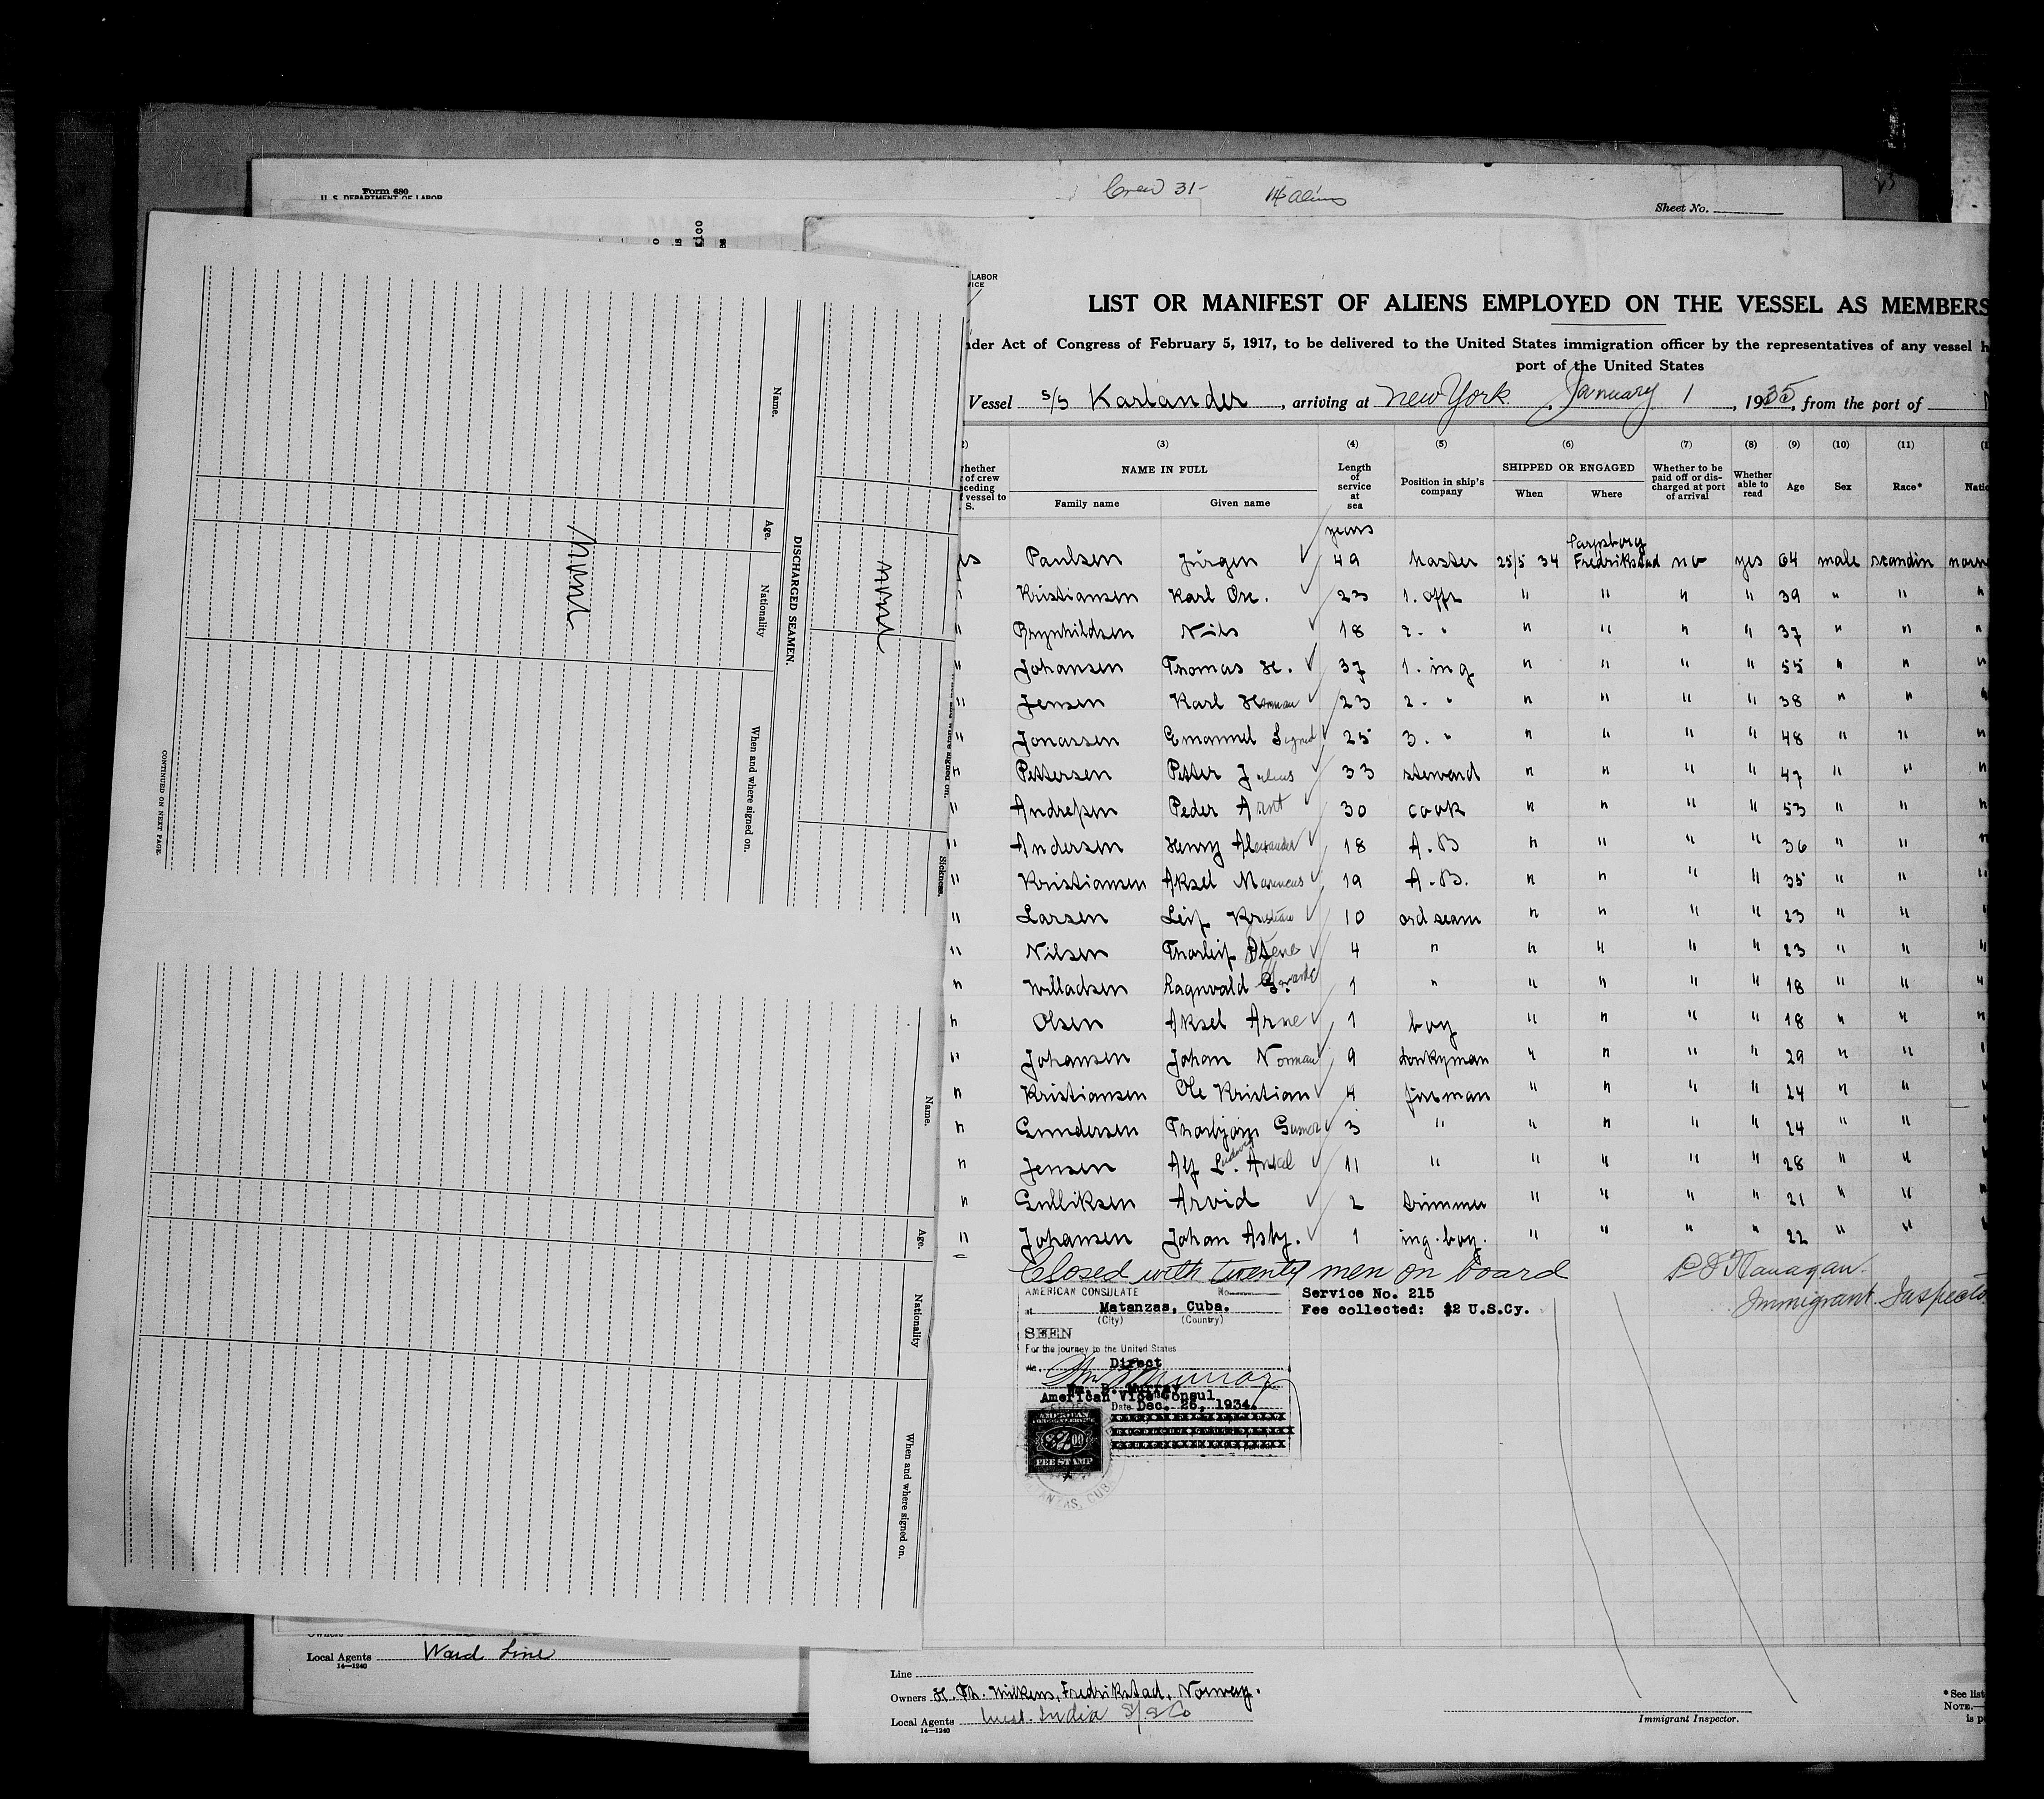 Form 680
U. S. DEPARTMENT OF LABOR
Crew 31- 14 aliens
Sheet No.
LABOR
LIST OR MANIFEST OF ALIENS EMPLOYED ON THE VESSEL AS MEMBERS
nder Act of Congress of February 5, 1917, to be delivered to the United States immigration officer by the representatives of any vessel h
port of the United States
Vessel s/s Karlander, arriving at New York, January 1, 1935, from the port of
(3) (4) (5) (6) (7) (8) (9) (10) (11)
NAME IN FULL
Family name Given name
Length of service at sea
Position in ship's company
SHIPPED OR ENGAGED
When Where
Whether to be paid off or discharged at port of arrival
Whether able to read
Age Sex Race*
years
Sarpsborg
Paulsen Jürgen 49 Master 25/5 34 Fredrikstad no yes 64 male scandin
Kristiansen Karl 23 1. offr " " " " 39 " " "
Brynhildsen Nils 18 2. " " " " " 37 " " "
" Johansen Thomas H. 37 1. ing " " " " 55 " " "
" Jensen Karl Herman 23 2. " " " " " 38 " " "
" Jonassen Emanuel Sigurd 25 3. " " " " " 48 " " "
" Pettersen Petter Julius 33 steward " " " " 47 " " "
" Andressen Peder Arnt 30 cook " " " " 53 " " "
" Andersen Henry Alexander 18 A.B " " " " 36 " " "
" Kristiansen Aksel Marinius 19 A.B. " " " " 35 " " "
" Larsen Leif Kristian 10 ord seam " " " " 23 " " "
" Nilsen Thorleif 4 " " " " " 23 " " "
" Willadsen Ragnvald 1 " " " " " 18 " " "
" Olsen Aksel Arne 1 boy " " " " 18 " " "
" Johansen Johan Norman 9 donkyman " " " " 29 " " "
" Kristiansen Ole Kristian 4 fireman " " " " 24 " " "
" Gundersen Thorbjørn Gunnar 3 " " " " " 24 " " "
" Jensen Alf Ludvig 11 " " " " " 28 " " "
" Gulliksen Arvid 2 trimmer " " " " 21 " " "
" Johansen Johan Asbj. 1 ing.boy. " " " " 22 " " "
Closed with twenty men on board P J Flanagan
Immigrant Inspecto
AMERICAN CONSULATE No.
at Matanzas, Cuba.
(City) (Country)
Service No. 215
Fee collected: $2 U.S.Cy.
SEEN
For the journey to the United States
via Direct
Wm. B. Murray
American Vice Consul
Date Dec. 26, 1934.
AMERICAN
$2.00
FEE STAMP
Line
Owners H. Th. Wilkens, Fredrikstad, Norway.
Local Agents West. India S/S Co
14—1240
Immigrant Inspector.
*See list
NOTE.—
is p
Local Agents Ward Line
14—1240
Sickness.
none
DISCHARGED SEAMEN.
Name. Age. Nationality When and where signed on.
none
CONTINUED ON NEXT PAGE.
Name. Age. Nationality When and where signed on.